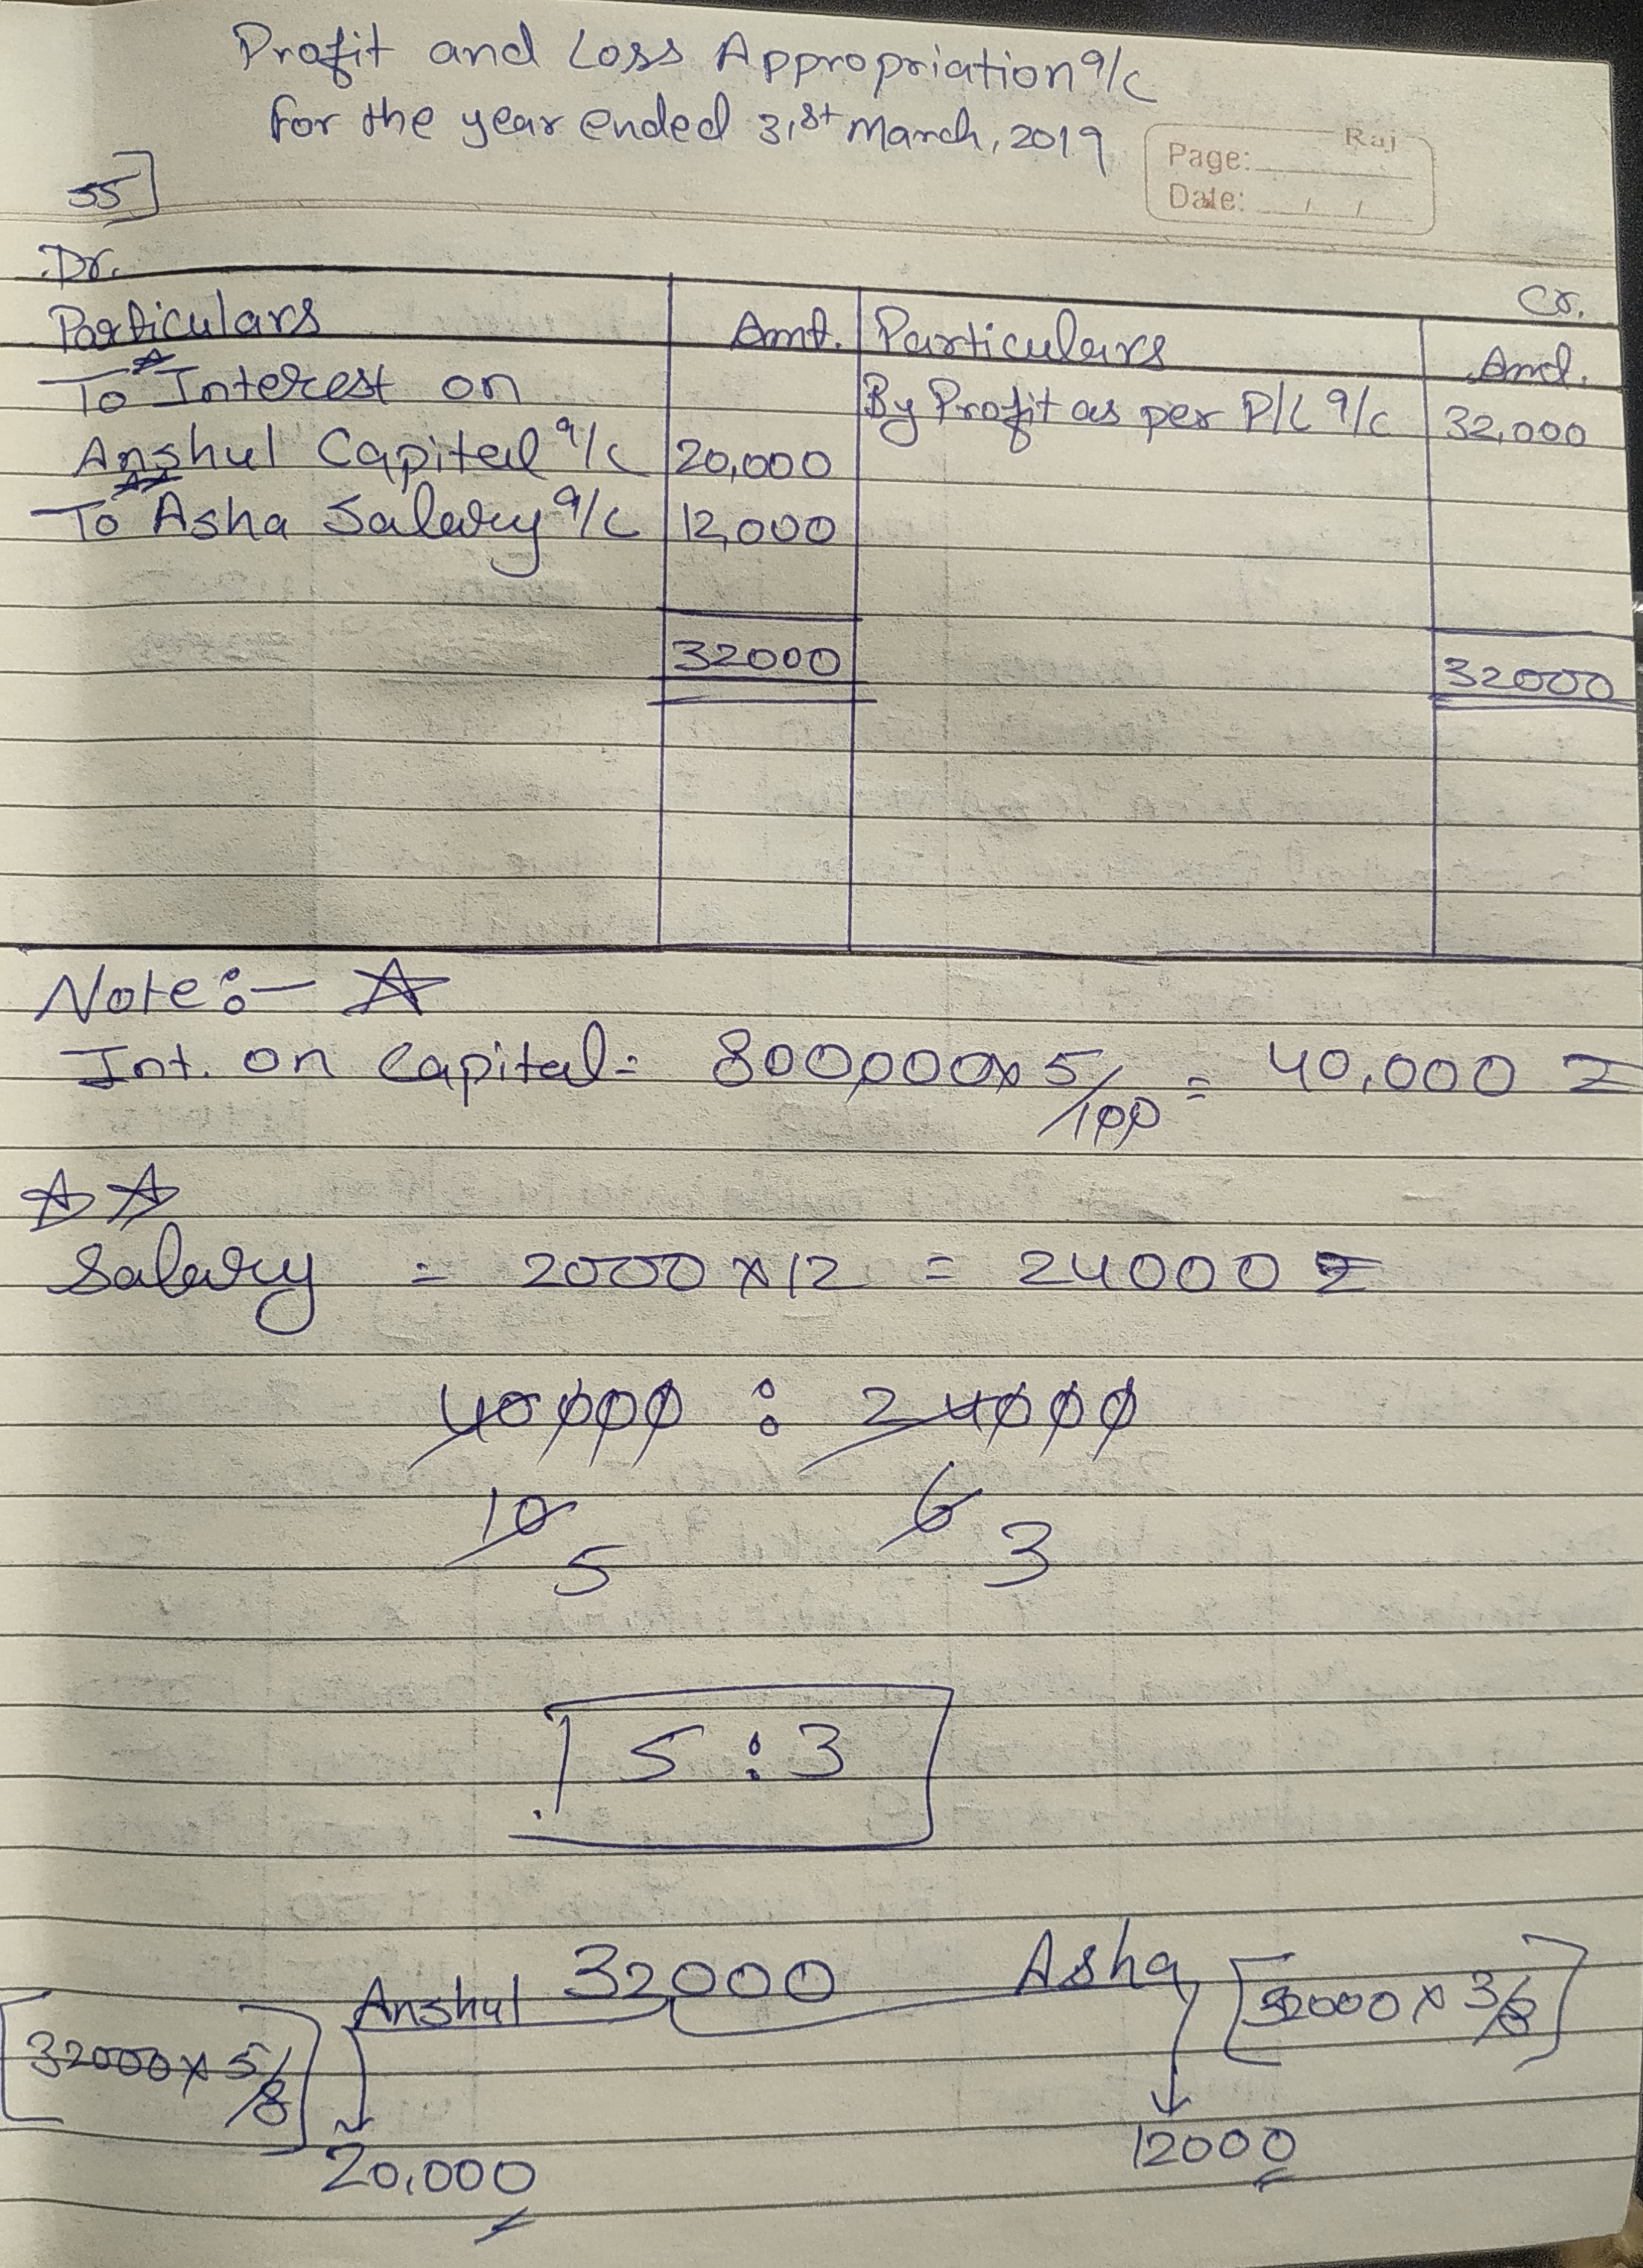 Profit and Loss Appropriation a/c
for the year ended 31st March, 2019
Raj
Page:
Date: / /
55]
Dr. Cr.
Particulars Amt. Particulars Amt.
To Interest on By Profit as per P/L a/c 32,000
Anshul Capital a/c 20,000
To Asha Salary a/c 12,000
32000 32000
Note:- ☆
Int. on Capital = 800,000 x 5/100 = 40,000
☆☆
Salary = 2000 x 12 = 24000
40000 : 24000
10 6
5 3
5 : 3
Anshul 32000 Asha
[32000 x 5/8] [32000 x 3/8]
20,000 12000